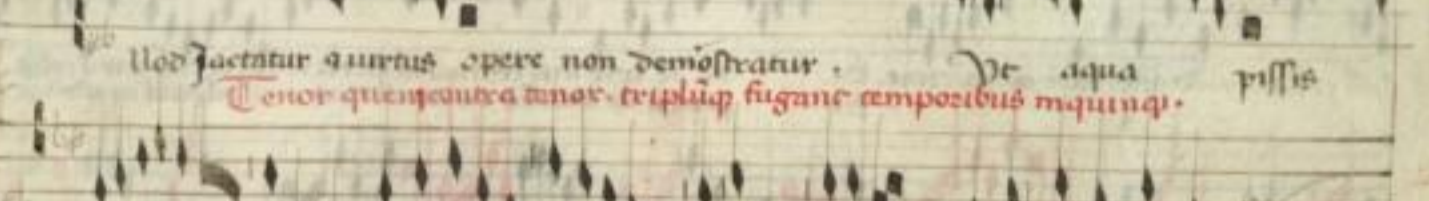 uod Jactatur uirtus opere non demōstratur. Ut aqua pissis
Tenor quem contra tenor. triplūqȝ fugant temporibus in quinqȝ.